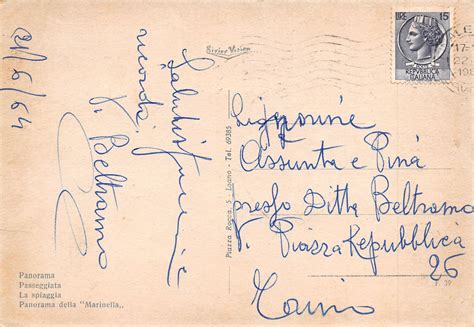 21/6/64
Saluti
ricorda
V. Beltramo
Panorama
Passeggiata
La spiaggia
Panorama della "Marinella,,
Piazza Roccia, 5 - Loano - Tel. 69385
LIRE 15
REPUBBLICA
ITALIANA
17-
22
19
Signorine
Assunta e Pina
presso Ditta Beltramo
V. Piazza Repubblica
26
Torino